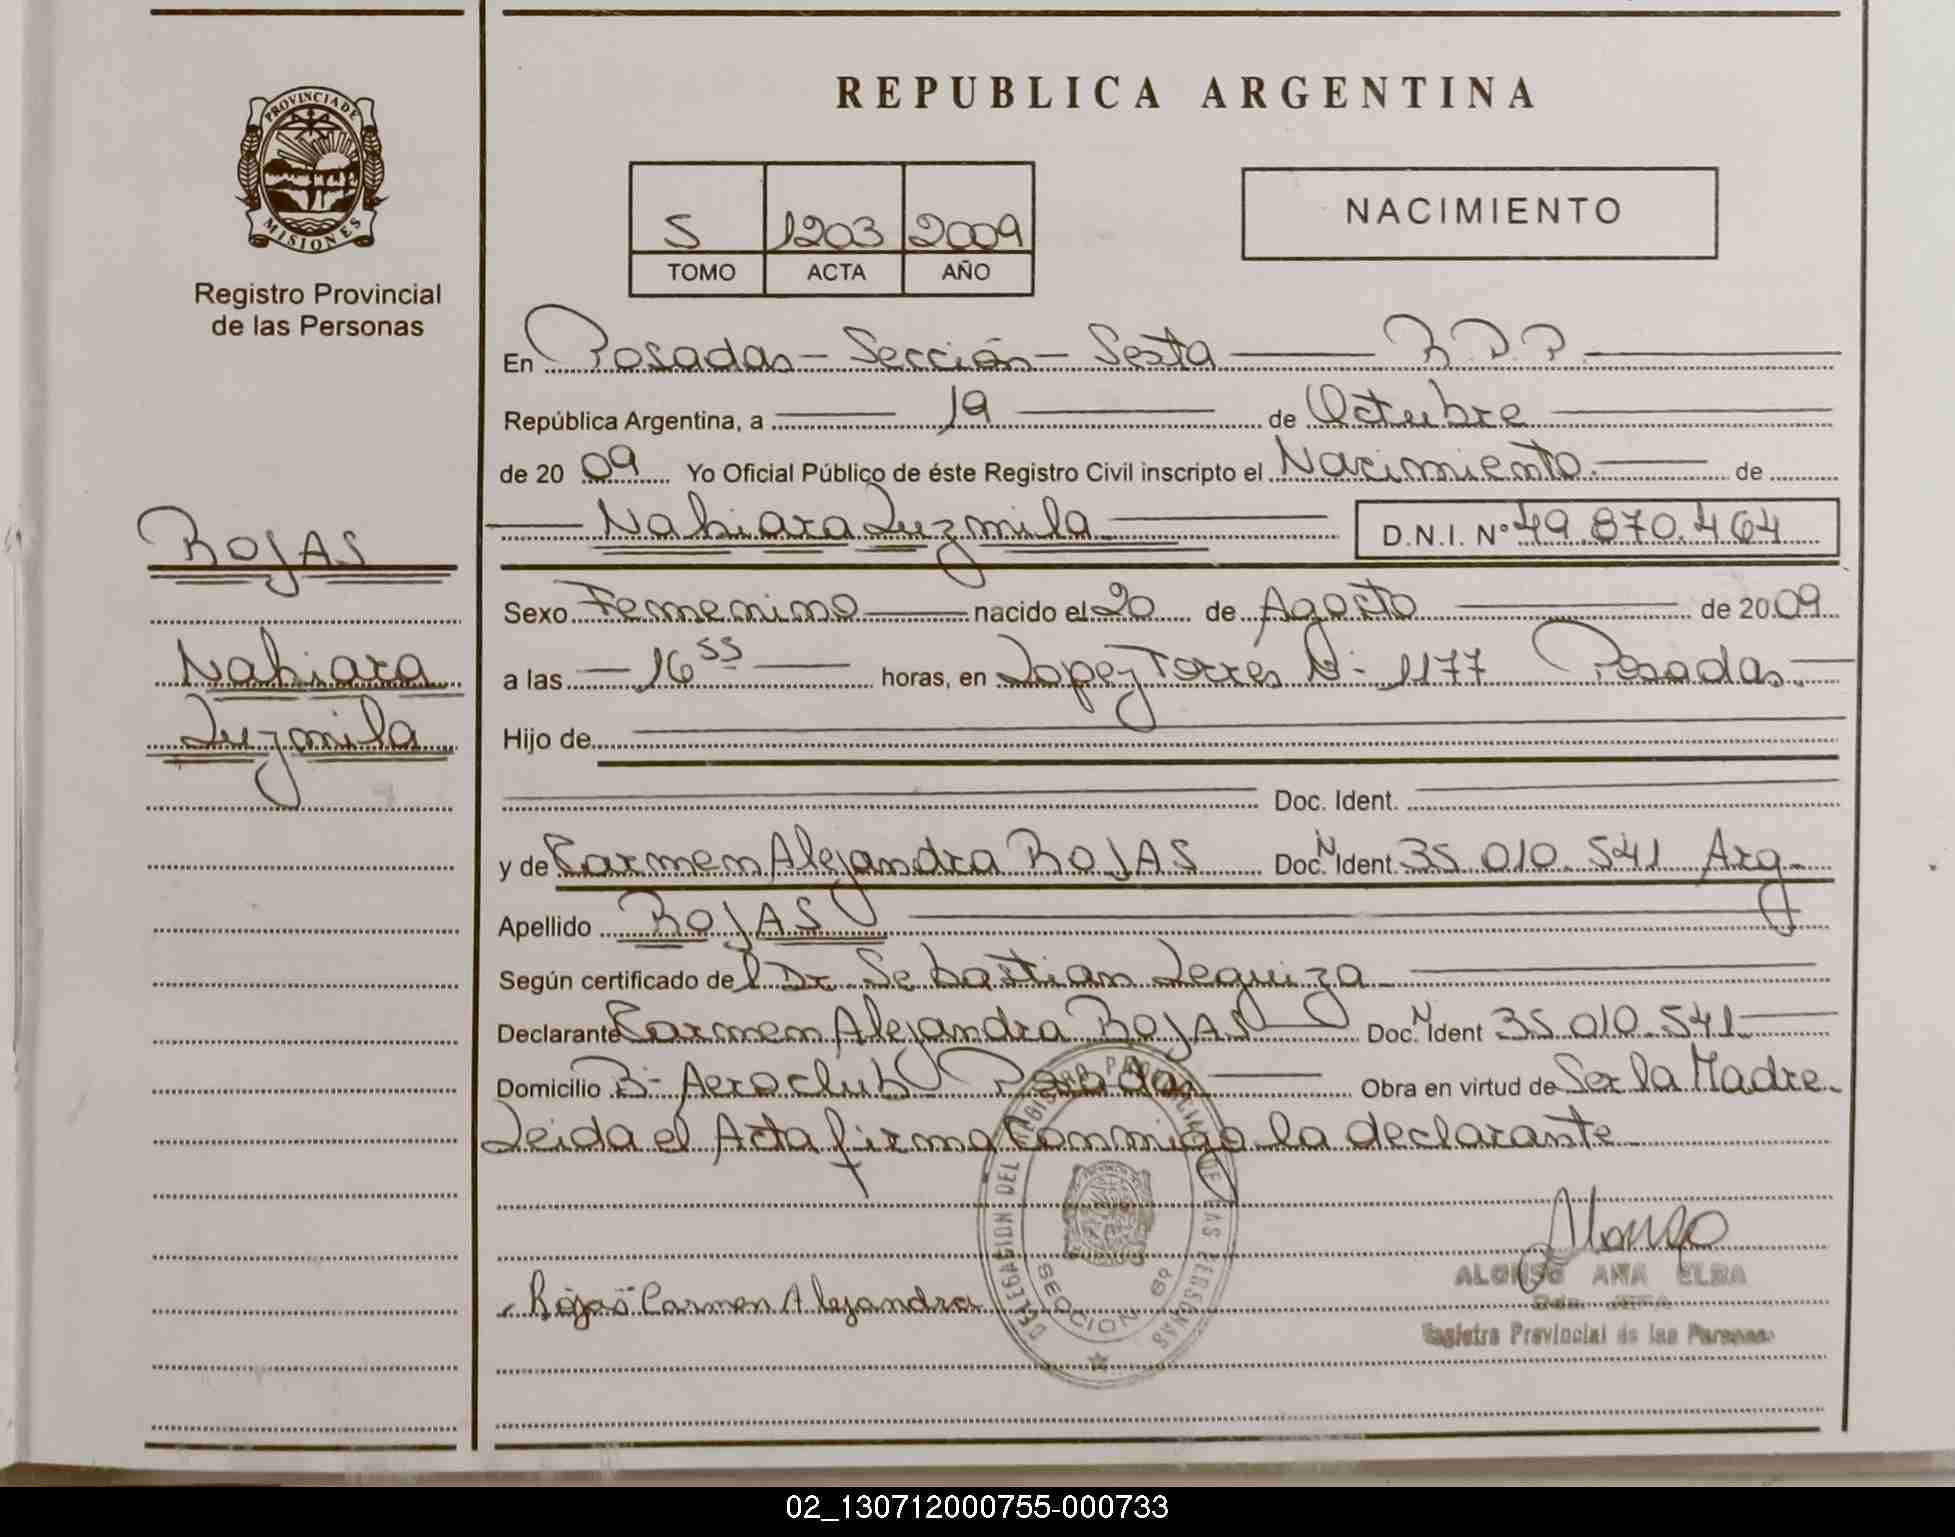 REPUBLICA ARGENTINA
PROVINCIA DE
MISIONES
Registro Provincial
de las Personas
5 1203 2009
TOMO ACTA AÑO
NACIMIENTO
En Posadas - Sección - Sexta R.P.P.
República Argentina, a 19 de Octubre
de 20 09 Yo Oficial Público de éste Registro Civil inscripto el Nacimiento de
Nahiara Luzmila D.N.I. N° 49.870.464
ROJAS
Nahiara
Luzmila
Sexo Femenino nacido el 20 de Agosto de 20 09
a las 16 55 horas, en Lopez Torres N°- 1177 Posadas.
Hijo de
Doc. Ident.
y de Carmen Alejandra ROJAS Doc. N Ident. 35.010.541 Arg.
Apellido ROJAS
Según certificado de l Dr. Sebastian Leguiza
Declarante Carmen Alejandra ROJAS Doc. N Ident 35.010.541
Domicilio B- Aeroclub Posadas Obra en virtud de Ser la Madre.
Leida el Acta firma Conmigo la declarante
DELEGACION DEL REGISTRO PROVINCIAL DE LAS PERSONAS
SECCION 6º
Rojas Carmen Alejandra
Alonso
ALONSO ANA ELBA
JEFA
Registro Provincial de las Personas
02_130712000755-000733